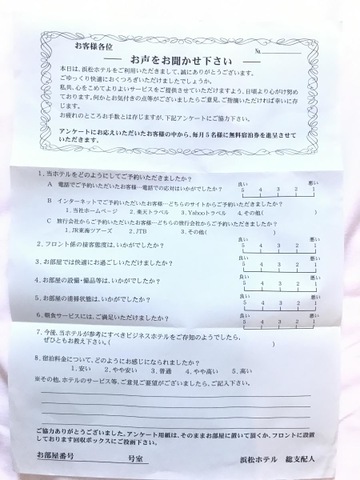 お客様各位
№
お声をお聞かせ下さい
本日は、浜松ホテルをご利用いただきまして、誠にありがとうございます。
ごゆっくり快適におくつろぎいただけましたでしょうか。
私共、心をこめてよりよいサービスを提供させていただきますよう、日頃より心がけ努め
ておりますが、何かとお気付きの点等がございましたらご意見、ご指摘いただければ幸いに存
じます。
お疲れのところお手数とは存じますが、下記アンケートにご協力下さい。
アンケートにお応えいただいたお客様の中から、毎月5名様に無料宿泊券を進呈させて
いただきます。
1. 当ホテルをどのようにしてご予約いただきましたか？
A 電話でご予約いただいたお客様―電話での応対はいかがでしたか？
良い 悪い
5 4 3 2 1
B インターネットでご予約いただいたお客様―どちらのサイトからご予約いただきましたか？
1. 当社ホームページ 2. 楽天トラベル 3. Yahooトラベル 4. その他( )
C 旅行会社からご予約いただいたお客様―どちらの旅行会社からご予約いただきましたか？
1. JR東海ツアーズ 2. JTB 3. その他( )
2. フロント係の接客態度は、いかがでしたか？
良い 悪い
5 4 3 2 1
3. お部屋では快適にお過ごしいただけましたか？
良い 悪い
5 4 3 2 1
4. お部屋の設備・備品等は、いかがでしたか？
良い 悪い
5 4 3 2 1
5. お部屋の清掃状態は、いかがでしたか？
良い 悪い
5 4 3 2 1
6. 朝食サービスには、ご満足いただけましたか？
良い 悪い
5 4 3 2 1
7. 今後、当ホテルが参考にすべきビジネスホテルをご存知のようでしたら、
ぜひともお教え下さい。( )
8. 宿泊料金について、どのようにお感じになられましたか？
1. 安い 2. やや安い 3. 普通 4. やや高い 5. 高い
※その他、ホテルのサービス等、ご意見ご要望がございましたら、ご記入下さい。
ご協力ありがとうございました。アンケート用紙は、そのままお部屋に置いて頂くか、フロントに設置
しております回収ボックスにご投函下さい。
お部屋番号 号室
浜松ホテル 総支配人